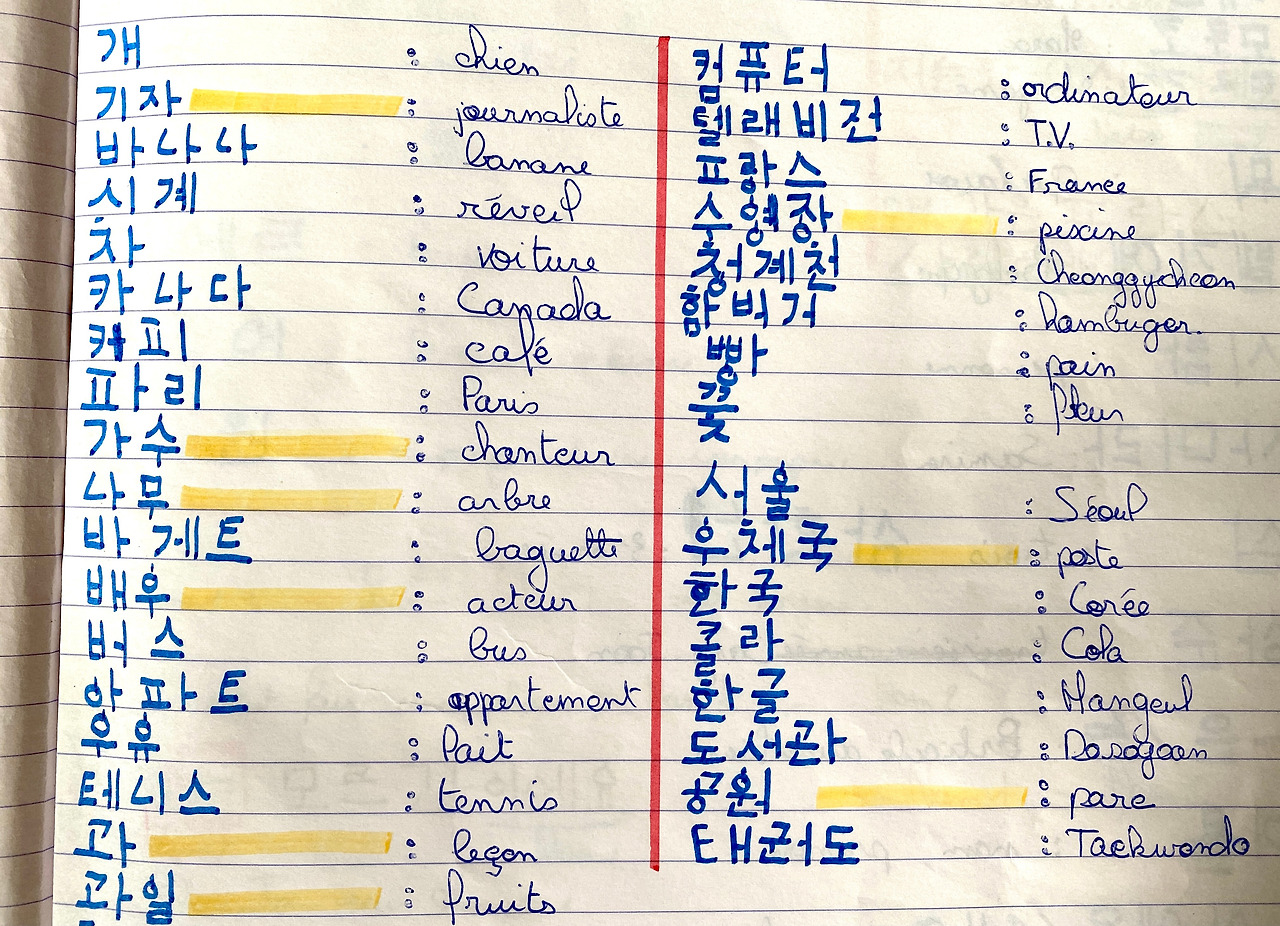 개 : chien
기자 : journaliste
바나나 : banane
시계 : réveil
차 : voiture
카나다 : Canada
커피 : café
파리 : Paris
가수 : chanteur
나무 : arbre
바게트 : baguette
배우 : acteur
버스 : bus
아파트 : appartement
우유 : lait
테니스 : tennis
과 : leçon
과일 : fruits
컴퓨터 : ordinateur
텔래비전 : T.V.
프랑스 : France
수영장 : piscine
청계천 : Cheonggyecheon
함버거 : hambuger.
빵 : pain
꽃 : fleur
서울 : Séoul
우체국 : poste
한국 : Corée
콜라 : Cola
한글 : Hangeul
도서관 : Dosogoan
공원 : parc
태권도 : Taekwondo